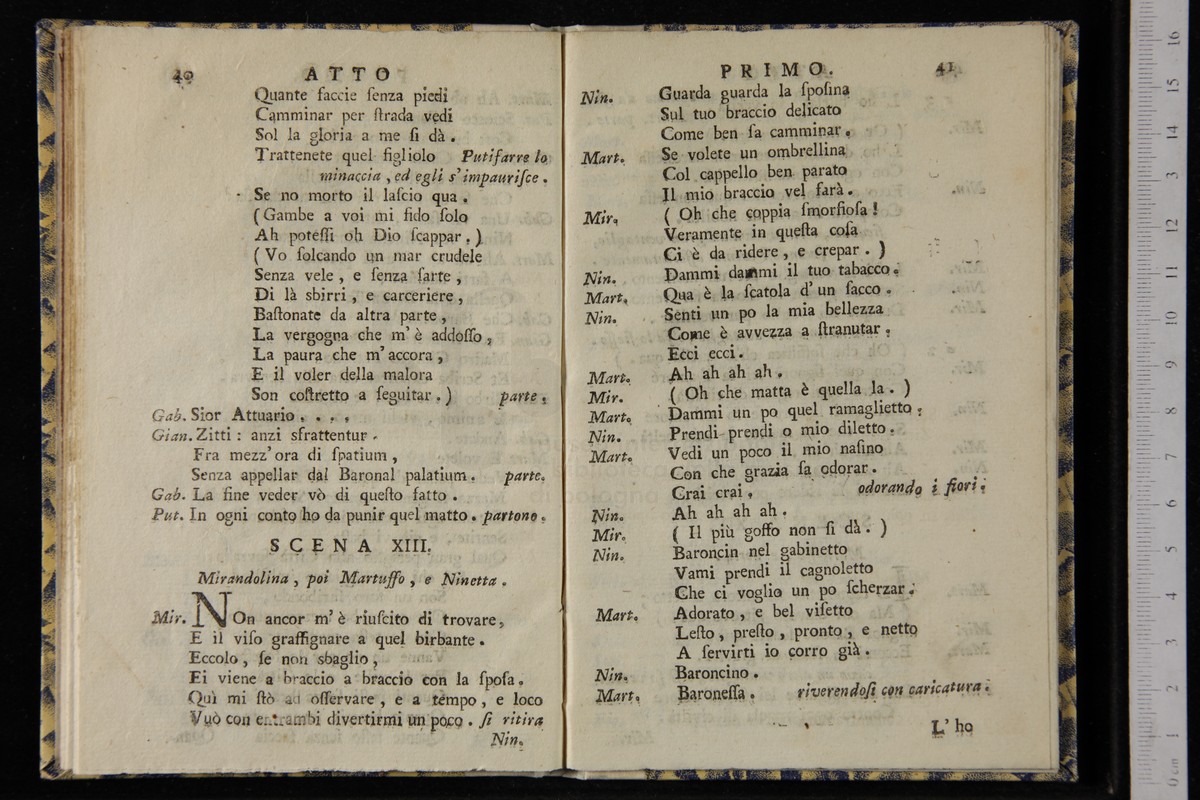 40 ATTO
Quante faccie ſenza piedi
Camminar per ſtrada vedi
Sol la gloria a me ſi dà .
Trattenete quel figliolo Putifarre lo
minaccia , ed egli s' impauriſce .
Se no morto il laſcio qua .
( Gambe a voi mi fido ſolo
Ah poteſſi oh Dio ſcappar . )
( Vo ſolcando un mar crudele
Senza vele , e ſenza ſarte ,
Di là sbirri , e carceriere ,
Baſtonate da altra parte ,
La vergogna che m' è addoſſo ,
La paura che m' accora ,
E il voler della malora
Son coſtretto a ſeguitar . ) parte .
Gab. Sior Attuario . . . .
Gian. Zitti : anzi sfrattentur .
Fra mezz' ora di ſpatium ,
Senza appellar dal Baronal palatium . parte.
Gab. La fine veder vò di queſto fatto .
Put. In ogni conto ho da punir quel matto . partono .
SCENA XIII.
Mirandolina , poi Martuffo , e Ninetta .
Mir. NOn ancor m' è riuſcito di trovare,
E il viſo graffignare a quel birbante .
Eccolo , ſe non sbaglio ,
Ei viene a braccio a braccio con la ſpoſa .
Quì mi ſtò ad oſſervare , e a tempo , e loco
Vuò con entrambi divertirmi un poco . ſi ritira
Nin.
PRIMO. 41
Nin. Guarda guarda la ſpoſina
Sul tuo braccio delicato
Come ben ſa camminar .
Mart. Se volete un ombrellina
Col cappello ben parato
Il mio braccio vel farà .
Mir. ( Oh che coppia ſmorfioſa !
Veramente in queſta coſa
Ci è da ridere , e crepar . )
Nin. Dammi dammi il tuo tabacco .
Mart. Qua è la ſcatola d' un ſacco .
Nin. Senti un po la mia bellezza
Come è avvezza a ſtranutar .
Ecci ecci .
Mart. Ah ah ah ah .
Mir. ( Oh che matta è quella la . )
Mart. Dammi un po quel ramaglietto .
Nin. Prendi prendi o mio diletto .
Mart. Vedi un poco il mio naſino
Con che grazia ſa odorar .
Crai crai . odorando i fiori .
Nin. Ah ah ah ah .
Mir. ( Il più goffo non ſi dà . )
Nin. Baroncin nel gabinetto
Vami prendi il cagnoletto
Che ci voglio un po ſcherzar .
Mart. Adorato , e bel viſetto
Leſto , preſto , pronto , e netto
A ſervirti io corro già .
Nin. Baroncino .
Mart. Baroneſſa . riverendoſi con caricatura .
L' ho
0 cm 1 2 3 4 5 6 7 8 9 10 11 12 13 14 15 16